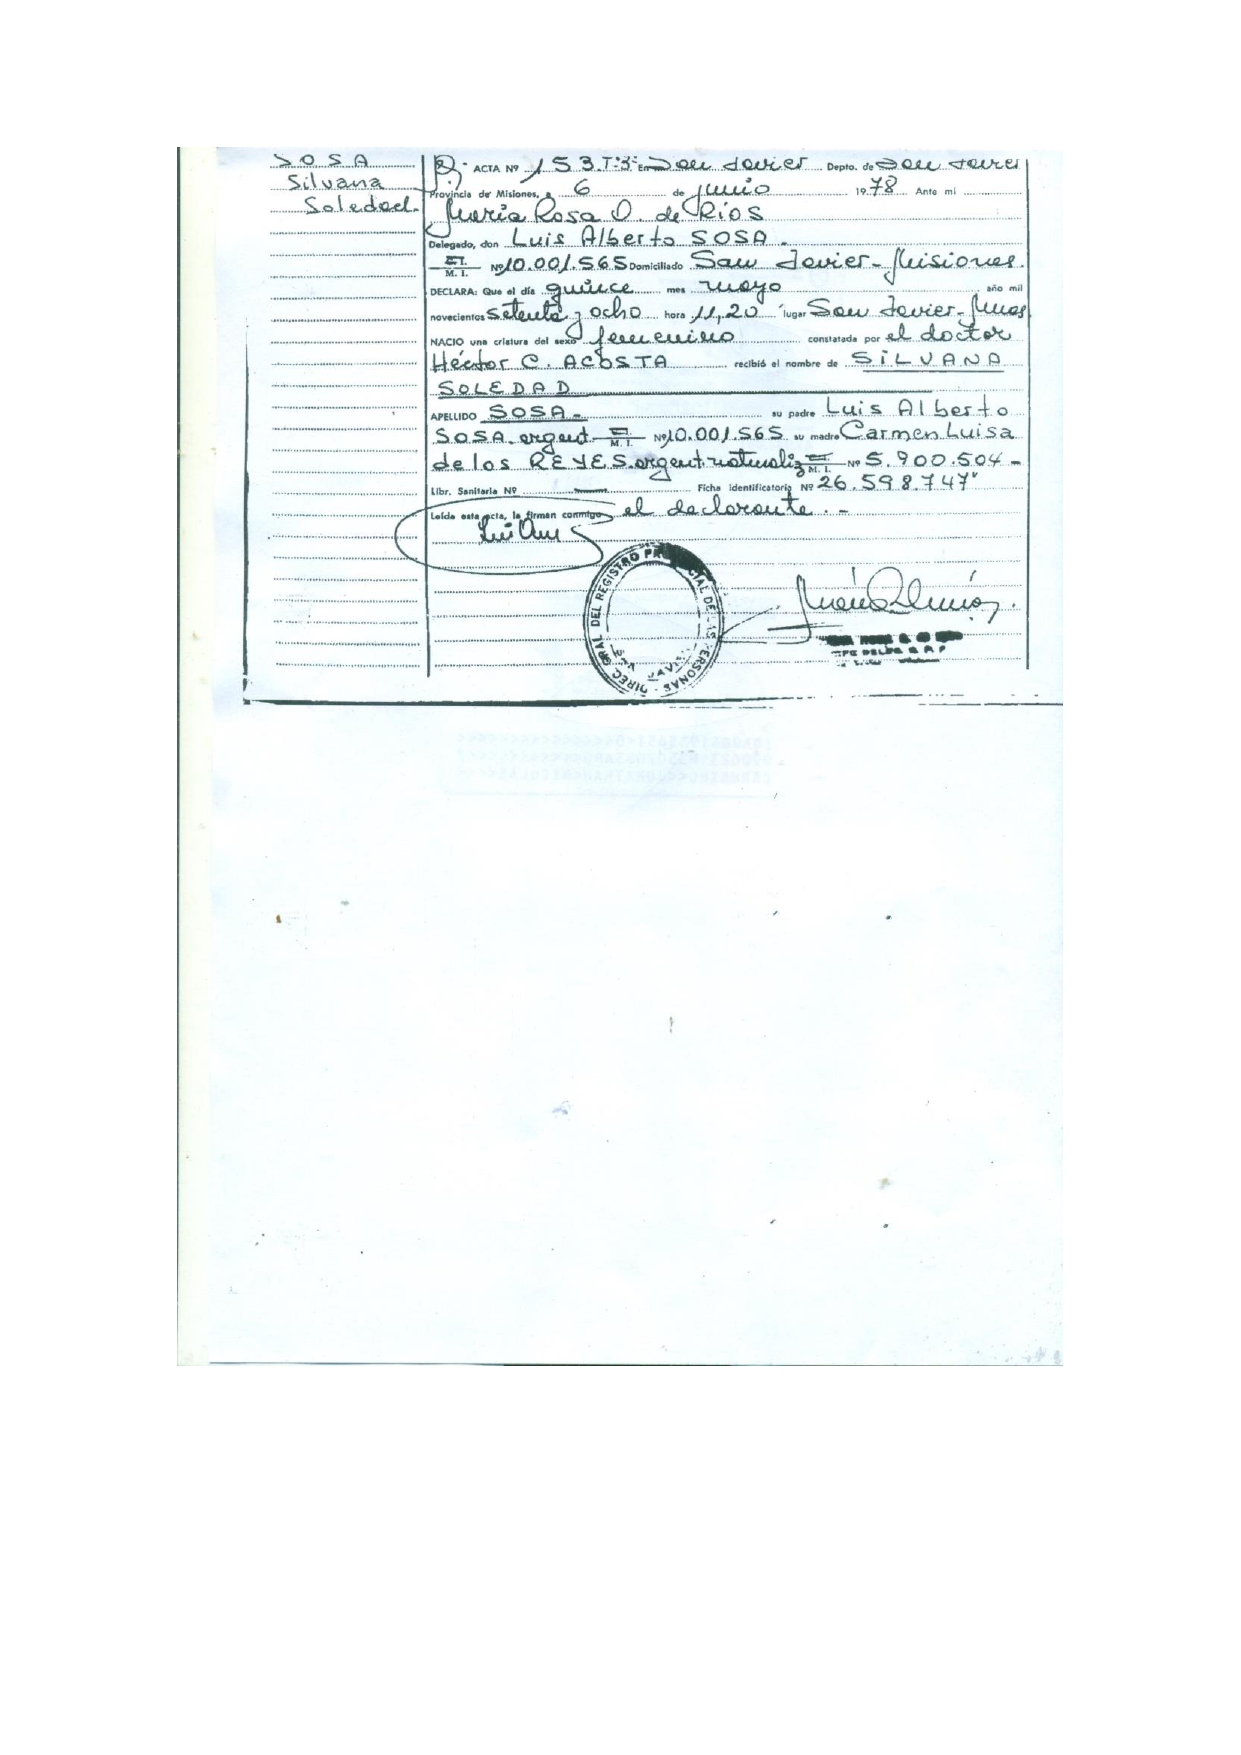 SOSA
Silvana
Soledad.
ACTA Nº 153.T:3: En San Javier Depto. de San Javier
Provincia de Misiones, a 6 de junio 1978 Ante mi
María Rosa O. de Ríos
Delegado, don Luis Alberto SOSA.
M. I. Nº 10.001.565 Domiciliado San Javier - Misiones.
DECLARA: Que el día quince mes mayo año mil
novecientos setenta y ocho hora 11,20 lugar San Javier - Mnes
NACIO una criatura del sexo femenino constatada por el doctor
Héctor C. ACOSTA recibió el nombre de SILVANA
SOLEDAD
APELLIDO SOSA - su padre Luis Alberto
SOSA. argent. M. I. Nº 10.001.565 su madre Carmen Luisa
de los REYES. argent. naturaliz M. I. Nº 5.900.504 -
Libr. Sanitaria Nº Ficha identificatoria Nº 26.598.747
Leída esta acta, la firman conmigo el declarante. -
DIREC. GRAL. DEL REGISTRO PROVINCIAL DE LAS PERSONAS
SAN JAVIER